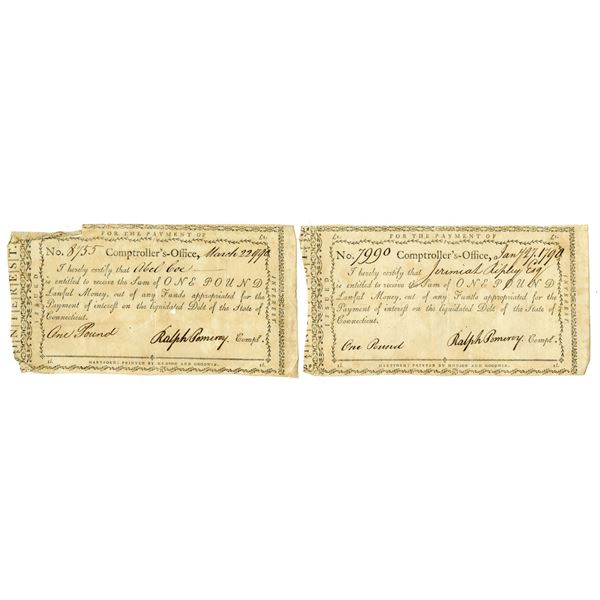 FOR THE PAYMENT OF
INTEREST.
ISSUED
No. 8755 Comptroller's-Office, March 22 1790
I hereby certify that Abel Coe
is entitled to receive the Sum of ONE POUND
Lawful Money, out of any Funds appropriated for the
Payment of interest on the liquidated Debt of the State of
Connecticut.
One Pound Ralph Pomeroy. Compt.
1l. HARTFORD: PRINTED BY HUDSON AND GOODWIN. 1l.
FOR THE PAYMENT OF
ISSUED
INTEREST
No. 7990 Comptroller's-Office, Jany 27. 1790
I hereby certify that Jeremiah Ripley Esqr
is entitled to receive the Sum of ONE POUND
Lawful Money, out of any Funds appropriated for the
Payment of interest on the liquidated Debt of the State of
Connecticut.
One Pound Ralph Pomeroy. Compt.
1l. HARTFORD: PRINTED BY HUDSON AND GOODWIN. 1l.